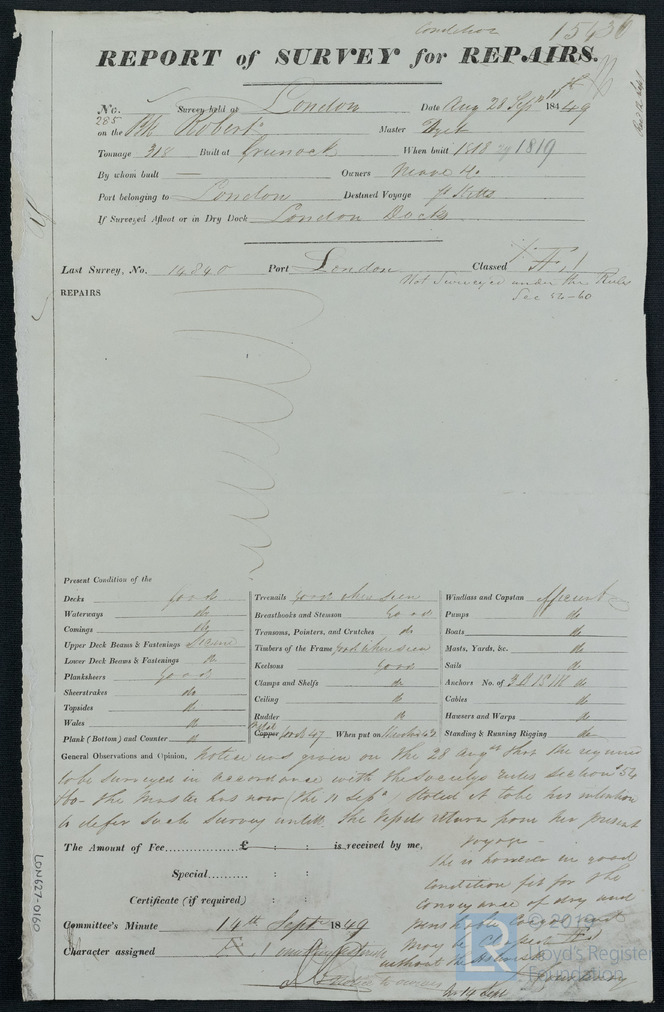 Condition 15430
REPORT of SURVEY for REPAIRS.
No. 285 Survey held at London Date Aug 28 Sept 11th 1849
on the Bk Robert Master
Tonnage 318 Built at Grunock When built 1818 1819
By whom built — Owners
Port belonging to London Destined Voyage St Kitts
If Surveyed Afloat or in Dry Dock London Docks
Last Survey, No. 14890 Port London Classed Æ 1
Not Surveyed under the Rules
Sec 54-60
REPAIRS
Present Condition of the
Decks good
Waterways do
Comings do
Upper Deck Beams & Fastenings
Lower Deck Beams & Fastenings do
Planksheers Good
Sheerstrakes do
Topsides do
Wales do
Plank (Bottom) and Counter do
Treenails Good when seen
Breasthooks and Stemson Good
Transoms, Pointers, and Crutches do
Timbers of the Frame good where seen
Keelsons Good
Clamps and Shelfs do
Ceiling do
Rudder do
Copper good 47 When put on
Windlass and Capstan efficient
Pumps do
Boats do
Masts, Yards, &c. do
Sails do
Anchors No. of 3 B 1 S 1 K do
Cables do
Hawsers and Warps do
Standing & Running Rigging do
General Observations and Opinion, Notice was given on the 28 Augst that she required
to be surveyed in accordance with the Societys rules section 54
60 - the Master has now (the 11 Sept) stated it to be his intention
to defer such survey untill the Vessel return from her present
voyage -
She is however in good
condition fit for the
conveyance of dry and
perishable cargoes and
may be Classed Æ 1
without the
The Amount of Fee £ : : is received by me,
Special : :
Certificate (if required) : :
Committee's Minute 14th Sept 1849
Character assigned Æ 1
LON627-0160
© 2019
Lloyd's Register
Foundation